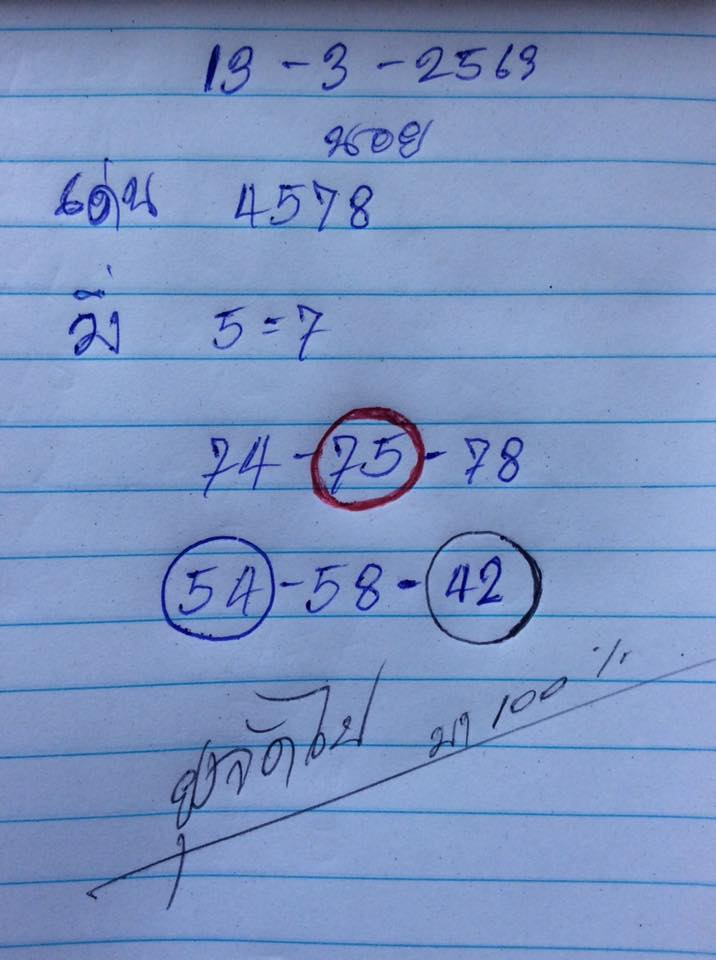 13-3-2563
นอย
เด่น 4578
วิ่ง 5=7
74-75-78
54-58-42
จัดไป มา 100%